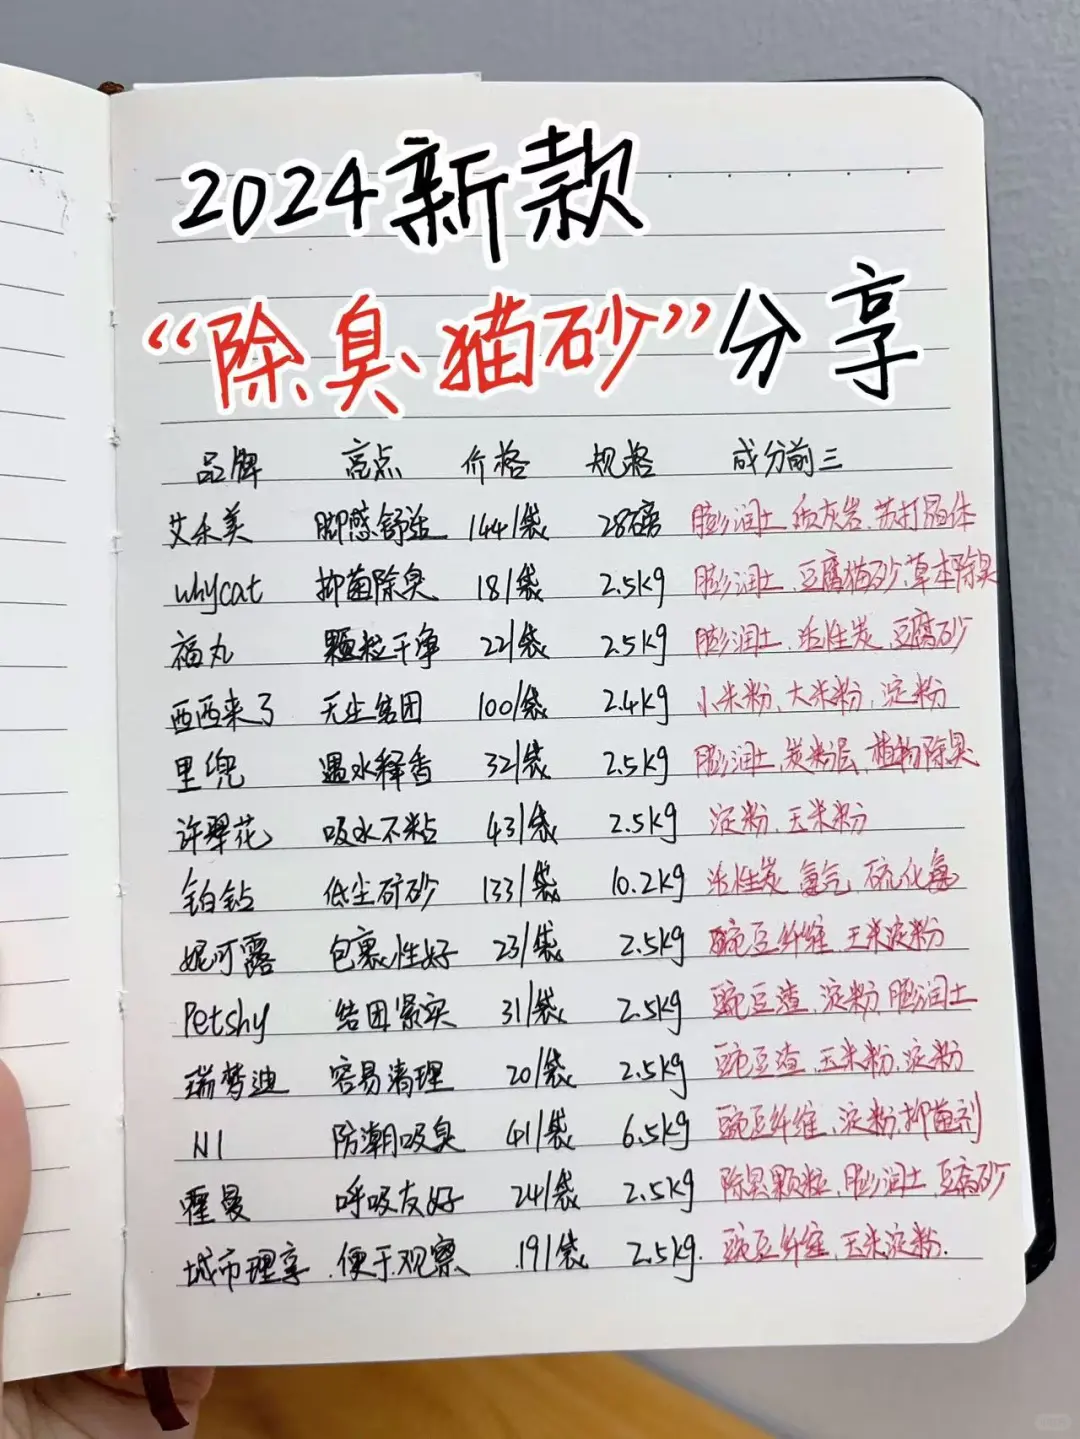 2024新款
“除臭猫砂”分享
品牌 亮点 价格 规格 成分前三
艾禾美 脚感舒适 144/袋 28磅 膨润土 质灰岩、苏打晶体
whycat 抑菌除臭 18/袋 2.5kg 膨润土、豆腐猫砂、草本除臭
福丸 颗粒干净 22/袋 2.5kg 膨润土、活性炭、豆腐砂
西西来了 无尘结团 100/袋 2.4kg 小米粉、大米粉、淀粉
里兜 遇水释香 32/袋 2.5kg 膨润土、炭粉层、植物除臭
许翠花 吸水不粘 43/袋 2.5kg 淀粉、玉米粉
铂钻 低尘矿砂 133/袋 10.2kg 活性炭、氨气、硫化氢
妮可露 包裹性好 23/袋 2.5kg 豌豆纤维、玉米淀粉
Petshy 结团紧实 31/袋 2.5kg 豌豆渣、淀粉、膨润土
瑞梦迪 容易清理 20/袋 2.5kg 豌豆渣、玉米粉、淀粉
N1 防潮吸臭 41/袋 6.5kg 豌豆纤维、淀粉、抑菌剂
霍曼 呼吸友好 24/袋 2.5kg 除臭颗粒、膨润土、豆腐砂
城市理享 便于观察 19/袋 2.5kg 豌豆纤维、玉米淀粉